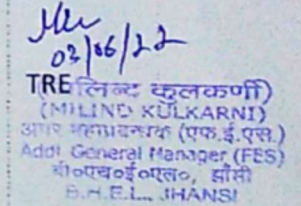 03/06/22
TRE लिन्द कुलकर्णी)
(MILIND KULKARNI)
अपर महाप्रबन्धक (एफ.ई.एस.)
Addl. General Manager (FES)
बी०एच०ई०एल०, झाँसी
B.H.E.L., JHANSI